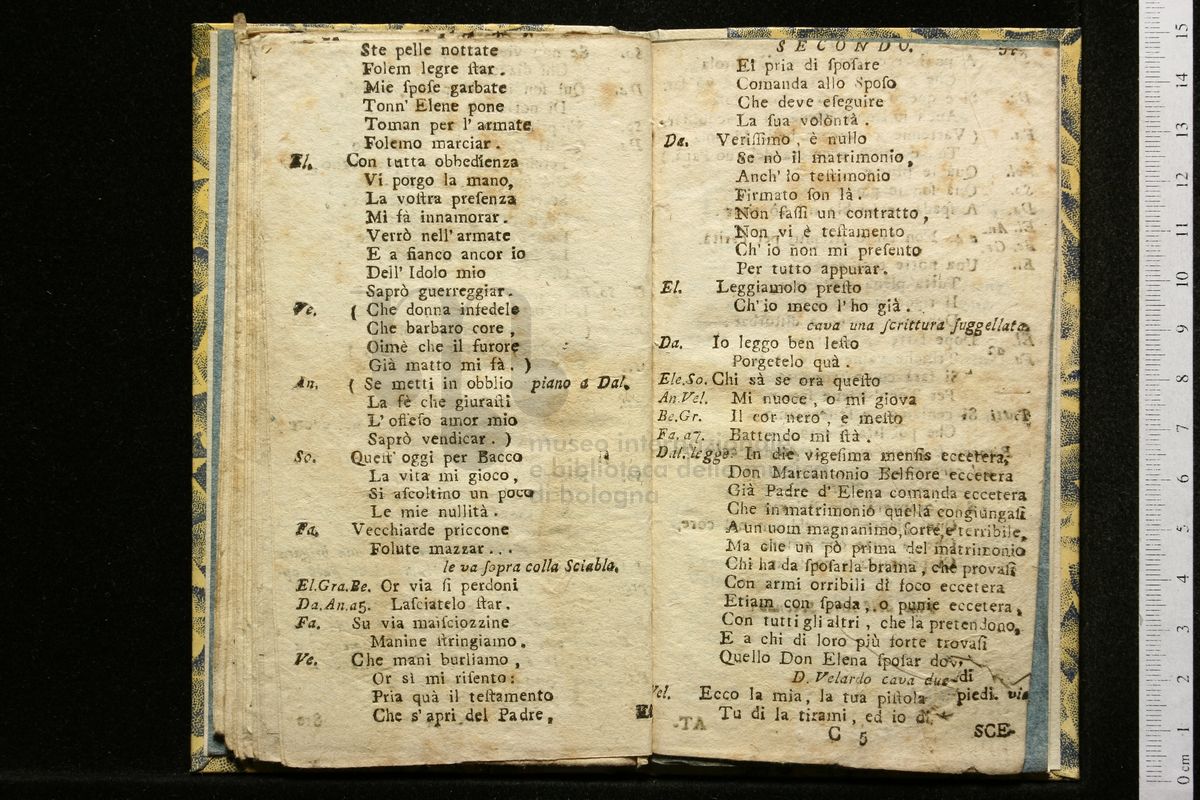 Ste pelle nottate
Folem legre ſtar.
Mie ſpoſe garbate
Tonn' Elene pone
Toman per l' armate
Folemo marciar.
El. Con tutta obbedienza
Vi porgo la mano,
La voſtra preſenza
Mi fà innamorar.
Verrò nell' armate
E a fianco ancor io
Dell' Idolo mio
Saprò guerreggiar.
Ve. ( Che donna infedele
Che barbaro core,
Oimè che il furore
Già matto mi fà. )
An. ( Se metti in obblio piano a Dal.
La fè che giuraſti
L' offeſo amor mio
Saprò vendicar. )
So. Queſt' oggi per Bacco
La vita mi gioco,
Si aſcoltino un poco
Le mie nullità.
Fa. Vecchiarde priccone
Folute mazzar...
le va ſopra colla Sciabla.
El.Gra.Be. Or via ſi perdoni
Da.An.a5. Laſciatelo ſtar.
Fa. Su via maiſciozzine
Manine ſtringiamo.
Ve. Che mani burliamo,
Or sì mi riſento:
Pria quà il teſtamento
Che s' aprì del Padre,
El
SECONDO.
Ei pria di ſpoſare
Comanda allo Spoſo
Che deve eſeguire
La ſua volontà.
Da. Veriſſimo, è nullo
Se nò il matrimonio,
Anch' io teſtimonio
Firmato ſon là.
Non faſſi un contratto,
Non vi è teſtamento
Ch' io non mi preſento
Per tutto appurar.
El. Leggiamolo preſto
Ch' io meco l' ho già.
cava una ſcrittura ſuggellata.
Da. Io leggo ben leſto
Porgetelo quà.
Ele.So. Chi sà se ora queſto
An.Vel. Mi nuoce, o mi giova
Be.Gr. Il cor nero, e meſto
Fa. a7. Battendo mi ſtà.
Dal.legge In die vigeſima menſis eccetera,
Don Marcantonio Belfiore eccetera
Già Padre d' Elena comanda eccetera
Che in matrimonio quella congiungaſi
A un uom magnanimo, forte, e terribile,
Ma che un pò prima del matrimonio
Chi ha da ſpoſarla brama, che provaſi
Con armi orribili di foco eccetera
Etiam con ſpada, o punie eccetera,
Con tutti gli altri, che la pretendono,
E a chi di loro più forte trovaſi
Quello Don Elena ſpoſar dov.
D. Velardo cava due di
Vel. Ecco la mia, la tua piſtola piedi. via
Tu di la tirami, ed io di
C 5
SCE-
museo internazionale
e biblioteca della musica
di bologna